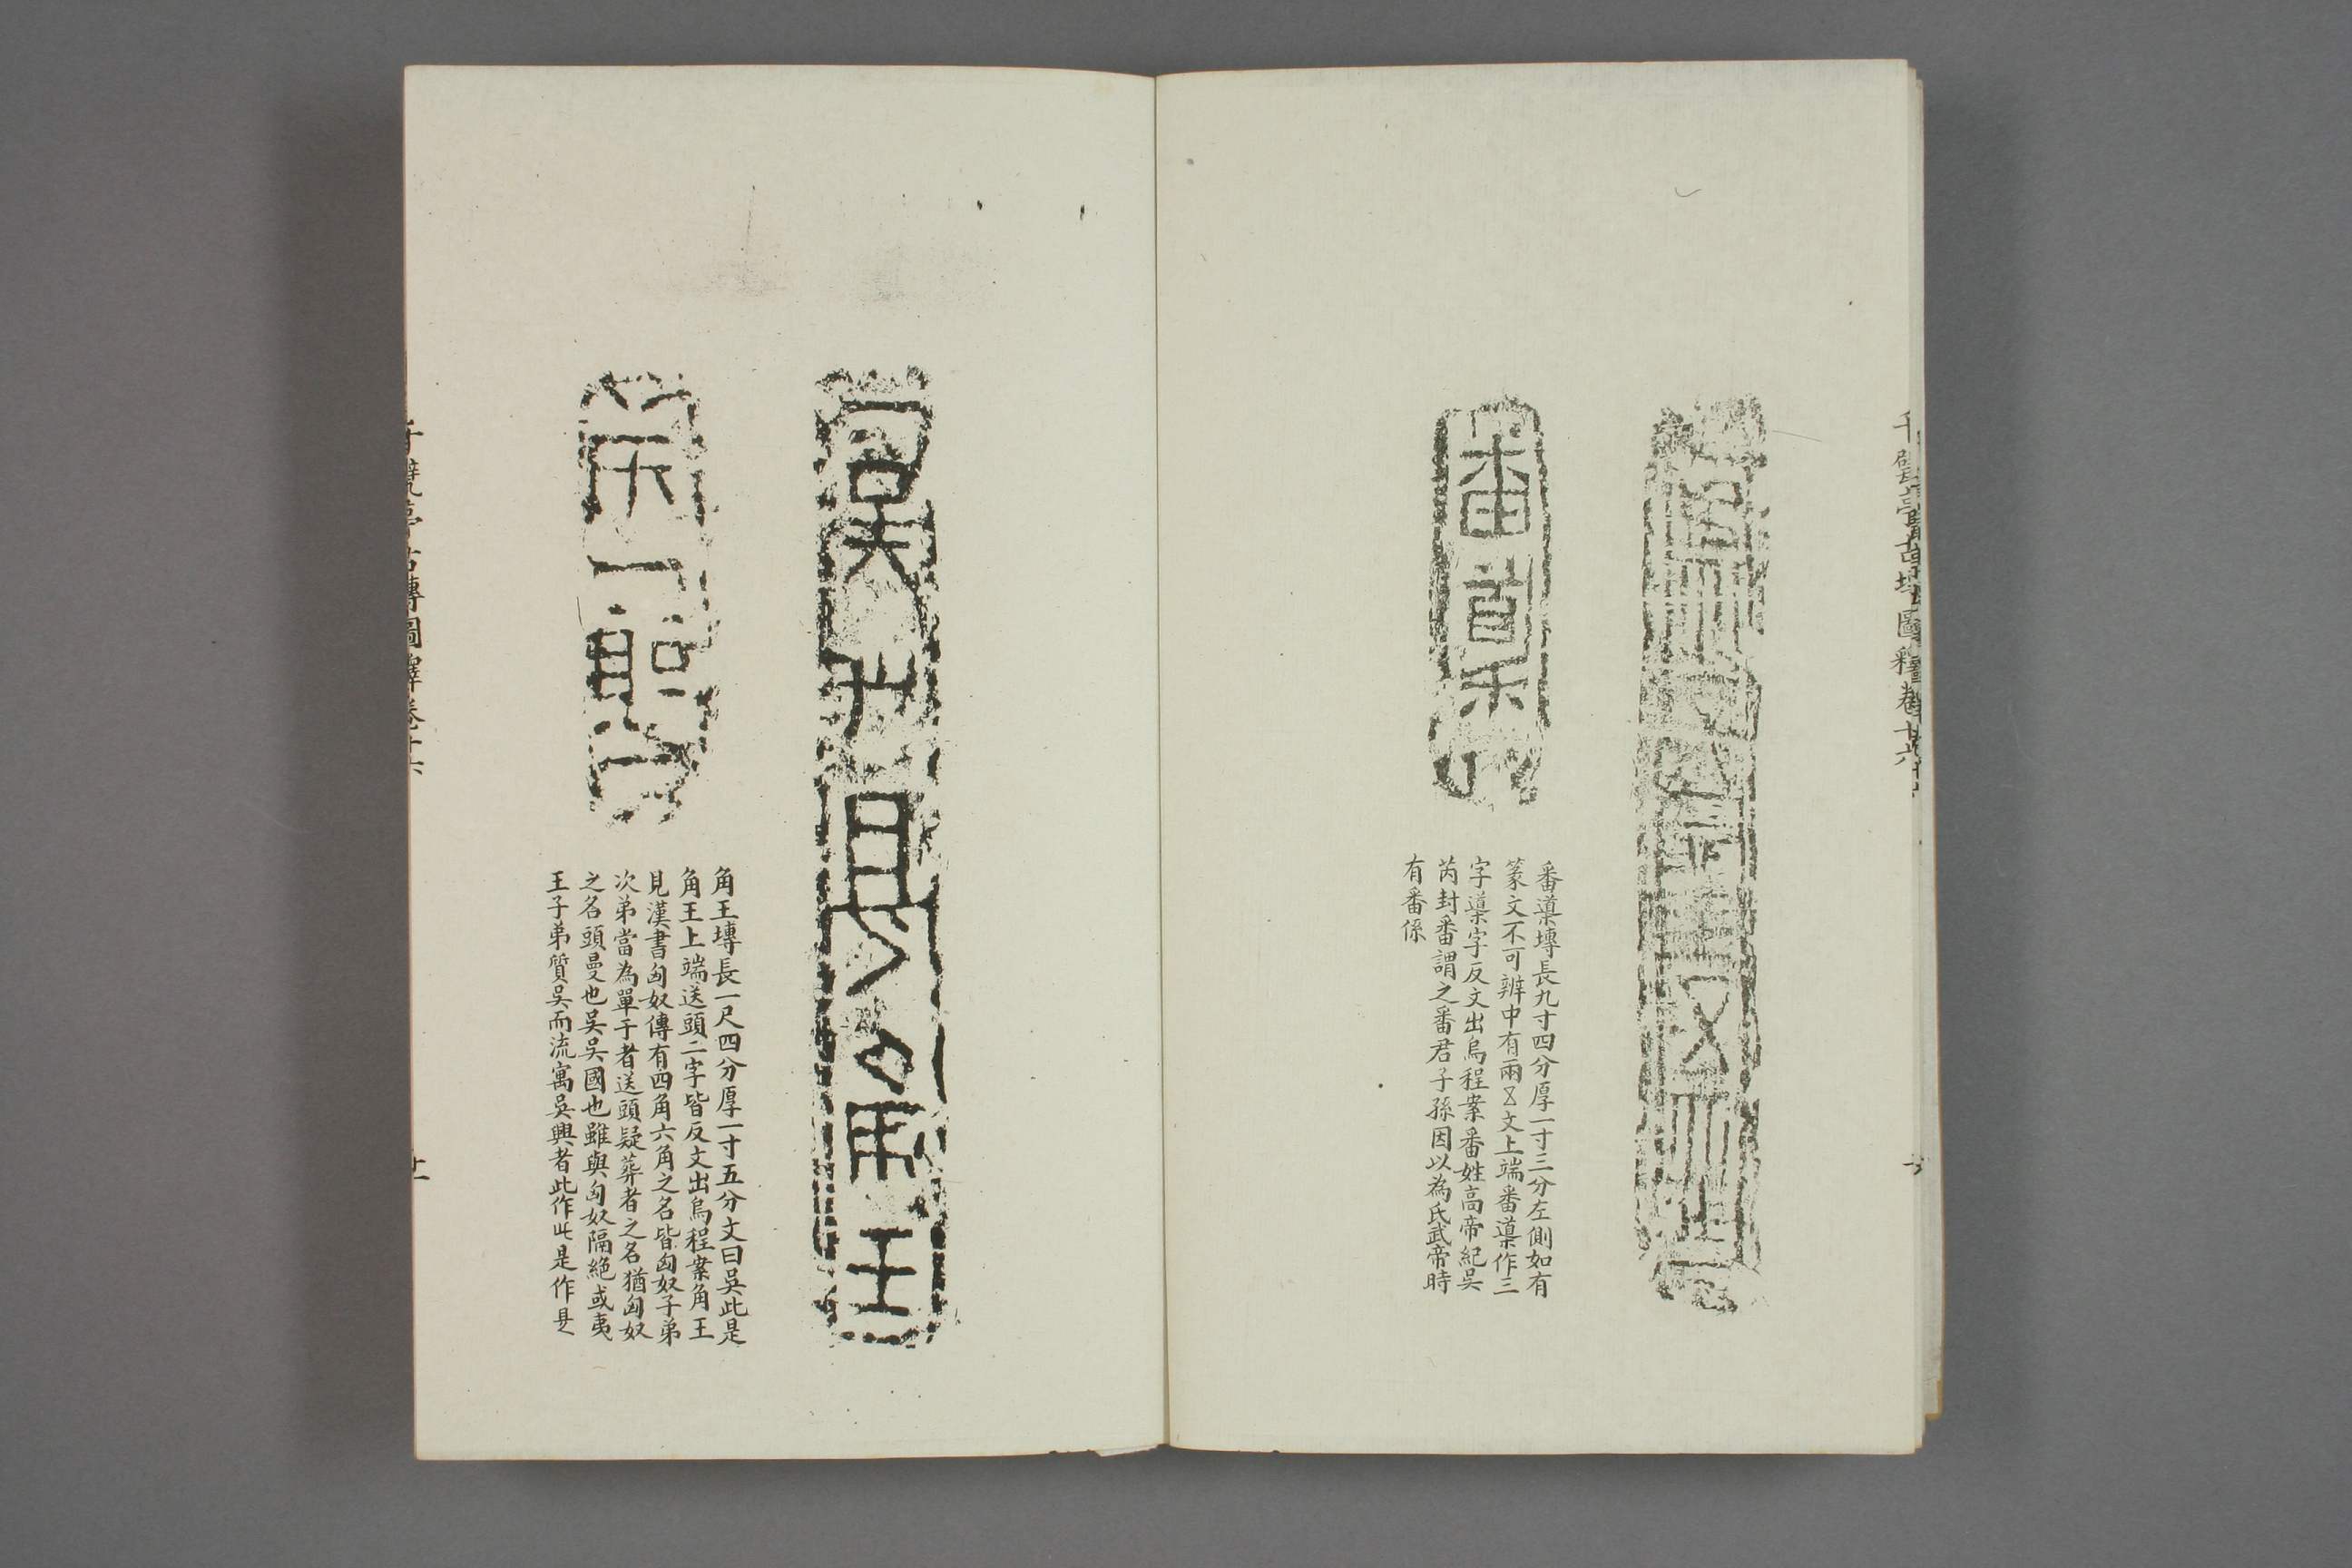 番䆃塼長九寸四分厚一寸三分左側如有
篆文不可辨中有兩㐅文上端番䆃作三
字䆃字反文出烏程案番姓高帝紀吳
芮封番謂之番君子孫因以為氏武帝時
有番係
角王塼長一尺四分厚一寸五分文曰吳此是
角王上端送頭二字皆反文出烏程案角王
見漢書匈奴傳有四角六角之名皆匈奴子弟
次弟當為單于者送頭疑葬者之名猶匈奴
之名頭曼也吳吳國也雖與匈奴隔絕或夷
王子弟質吳而流寓吳興者此作𣥂是作昰
千甓亭古塼圖釋卷十六